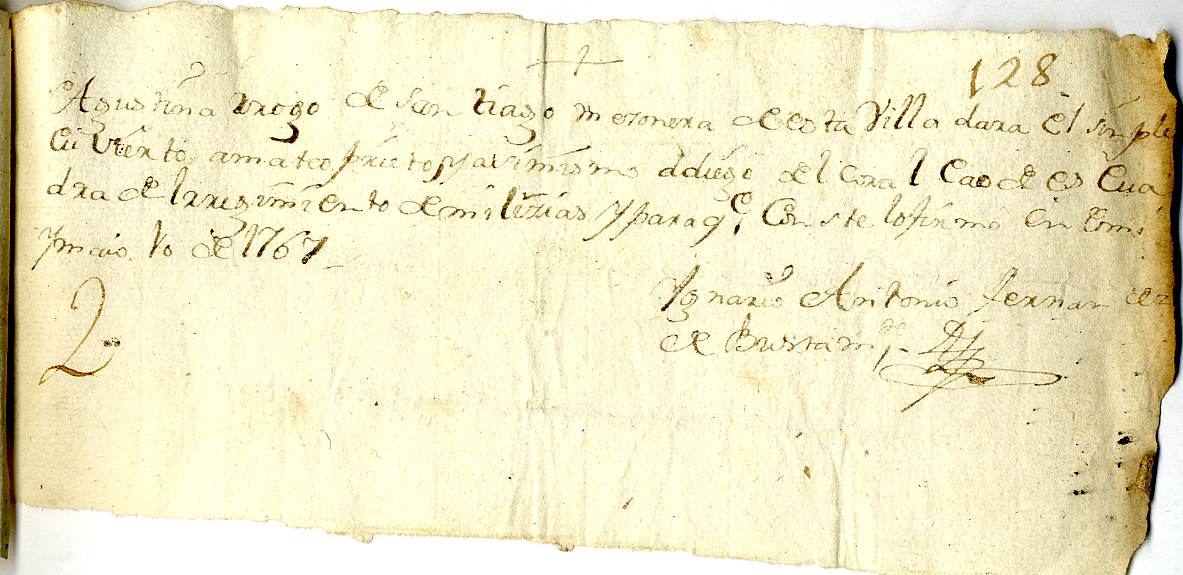 +
128
Agustina Vrogo de san tiago mesonera de esta Villa dara el sinple
cuvierto a mateo prieto y asimismo a diego del coral Cavo de es cua
dra de l rregimiento de milizias y para qe Conste lo firmo en
y maio 10 de 1767
Ygnacio Antonio fernandez
de Bustamte
2